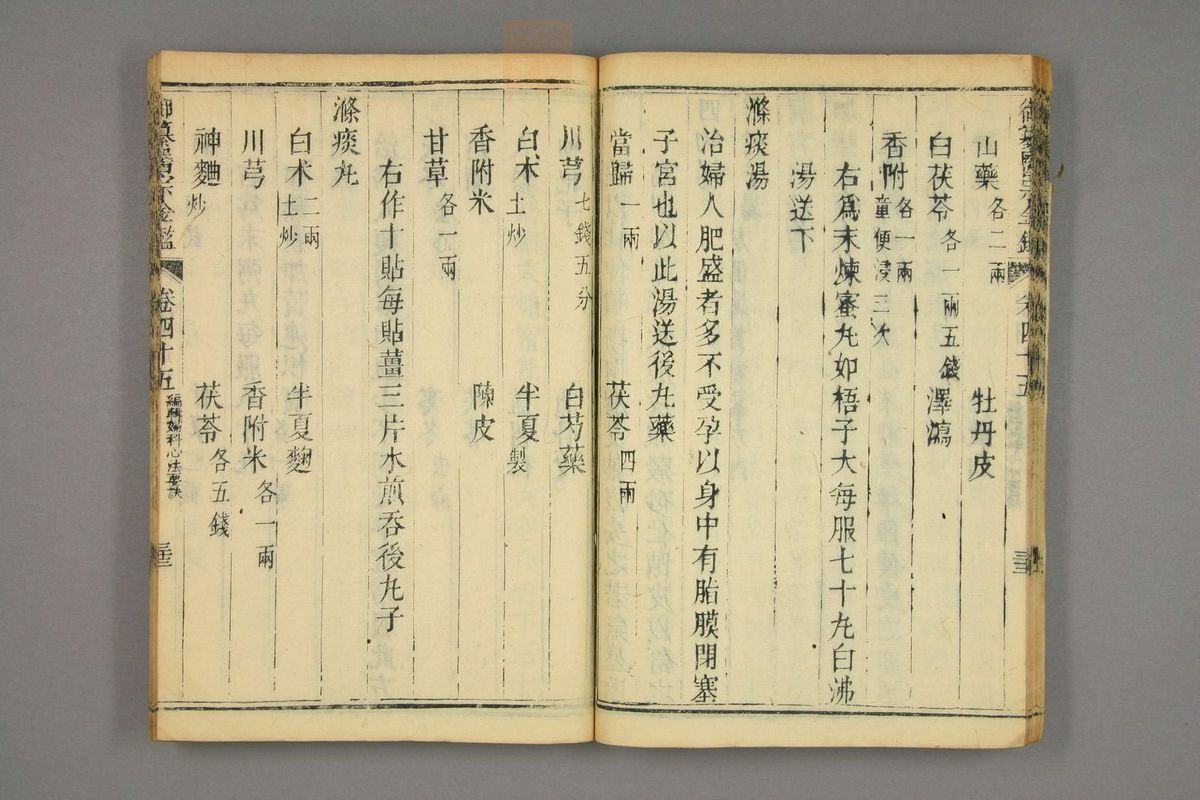 御纂醫宗金鑑 卷四十五 三三
山藥各二兩 牡丹皮
白茯苓各一兩五錢 澤瀉
香附各一兩童便浸三次
右爲末煉蜜丸如梧子大每服七十丸白沸
湯送下
滌痰湯
治婦人肥盛者多不受孕以身中有脂膜閉塞
子宮也以此湯送後丸藥
當歸一兩 茯苓四兩
川芎七錢五分 白芍藥
白朮土炒 半夏製
香附米 陳皮
甘草各一兩
右作十貼每貼薑三片水煎吞後丸子
滌痰丸
白朮二兩土炒 半夏麴
川芎 香附米各一兩
神麯炒 茯苓各五錢
御纂醫宗金鑑 卷四十五 編輯婦科心法要訣 三三